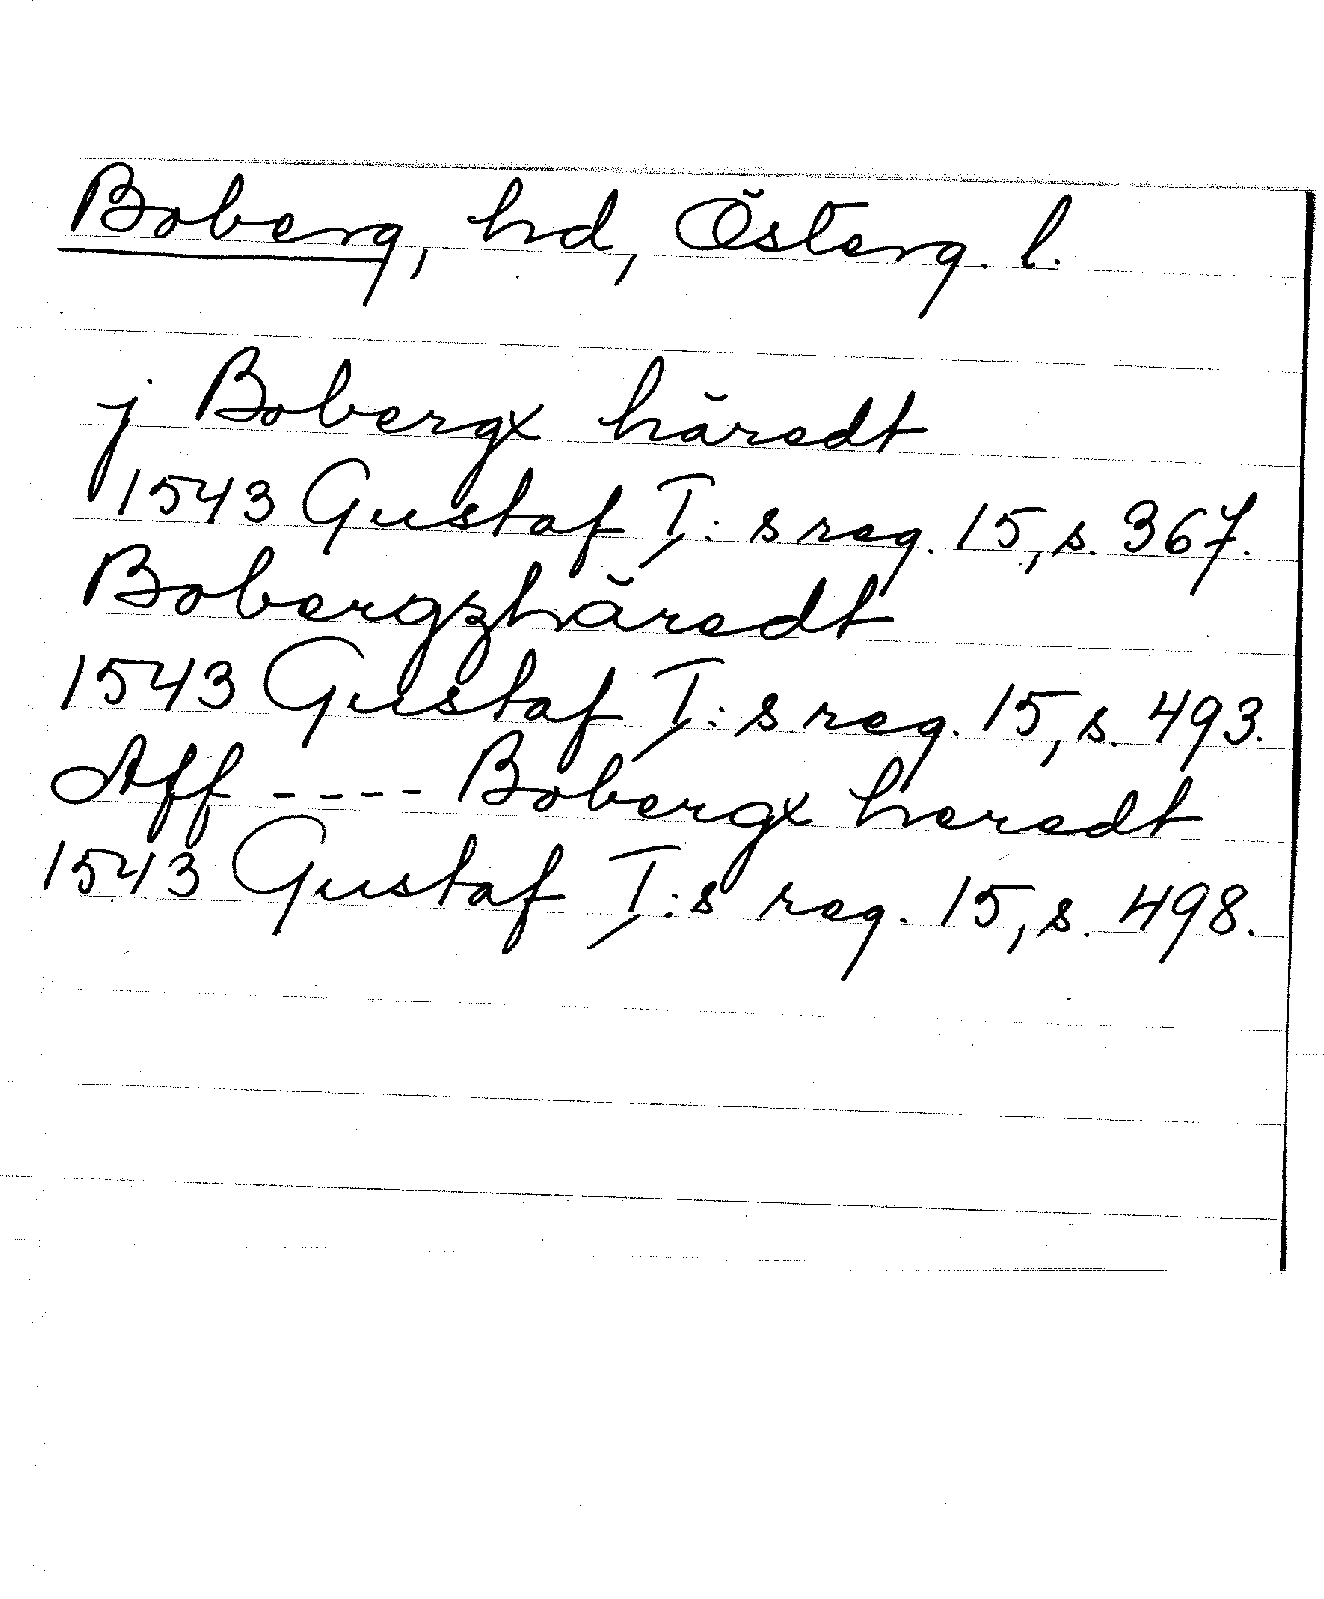 Boberg, hd, Österg. l.
j Bobergx häredt
1543 Gustaf I:s reg. 15, s. 367.
Bobergzhäredt
1543 Gustaf I:s reg. 15, s. 493.
Aff ---- Bobergx heredt
1543 Gustaf I:s reg. 15, s. 498.